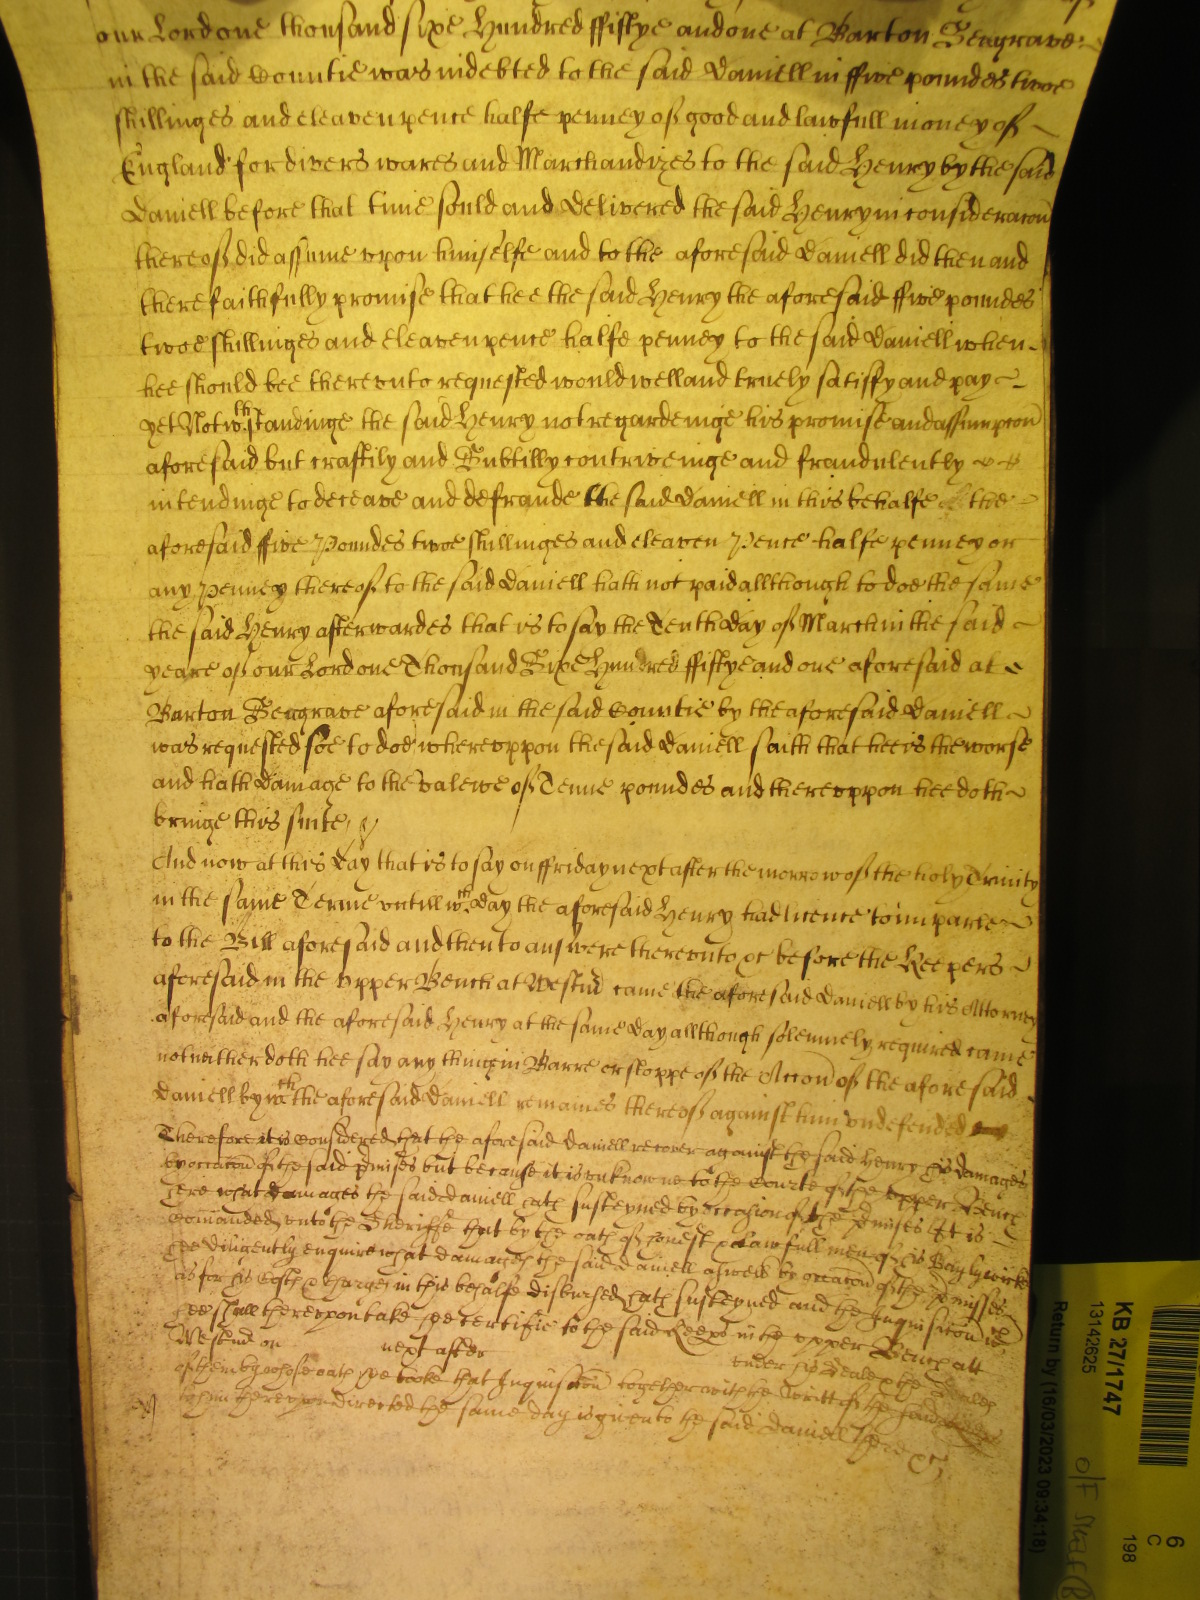 our Lord one thousand sixe Hundred ffiftye and one at Barton Seagrave
in the said Countie was indebted to the said Daniell in ffive poundes twoe
shillinges and eleaven pence halfe penney of good and lawfull money of
England for divers wares and Marchandizes to the said Henry by the said
Daniell before that time sould and delivered the said Henry in consideracon
thereof did assume upon himselfe and to the aforesaid Daniell did then and
there faithfully promise that hee the said Henry the aforesaid ffive poundes
twoe shillinges and eleaven pence halfe penney to the said Daniell when
hee should bee thereunto requested would well and truely satisfy and pay
yet Notwthstandinge the said Henry not regardeinge his promise and assumpcon
aforesaid but craftily and Subtilly contriveinge and fraudulently
intendinge to deceave and defraude the said Daniell in this behalfe the
aforesaid ffive Poundes twoe shillinges and eleaven Pence halfe penney or
any Penney thereof to the said Daniell hath not paid allthough to doe the same
the said Henry afterwardes that is to say the Tenth day of March in the said
yeare of our Lord one Thousand Sixe Hundred ffiftye and one aforesaid at
Barton Seagrave aforesaid in the said Countie by the aforesaid Daniell
was requested soe to doe whereuppon the said Daniell saith that hee is the worse
and hath damage to the valewe of Tenne poundes and thereuppon hee doth
bringe this suite
And now at this day that is to say on ffriday next after the morrow of the holy Trinity
in the same Terme untill wch day the aforesaid Henry had licence to imparle
to the Bill aforesaid and then to answere thereunto &c before the Keepers
aforesaid in the Upper Bench at Westmr came the aforesaid Daniell by his Attorney
aforesaid and the aforesaid Henry at the same day allthough solemnely required came
not neither doth hee say any thing in Barre or stoppe of the Accon of the aforesaid
Daniell by wch the aforesaid Daniell remaines thereof against him undefended
Therefore it is Considered that the aforesaid Daniell recover against the said Henry his damages
by occacon of the said pmises but because it is unknowne to the Courte of the upper Bench
here what damages the said Daniell hath susteyned by occasion of the pmises It is
Comanded unto the Sheriffe that by the oath of honest & lawfull men of his Baylywicke
he diligently enquire what damages the said Daniell aswell by occacon of the pmisses
as for his Costs & charges in this behalfe disbursed hath susteyned and the Inquisicon
hee shall thereupon take he certifie to the said Keeps in the upper Bench att
Westmr on next after under his Seale & the Seales
of them by whose oath he tooke that Inquisicon together with the Writt of the said
to him thereupon directed the same day is given to the said Daniell here &c
KB 27/1747
13142625
Return by (16/03/2023 09:34:18)
6
C
198